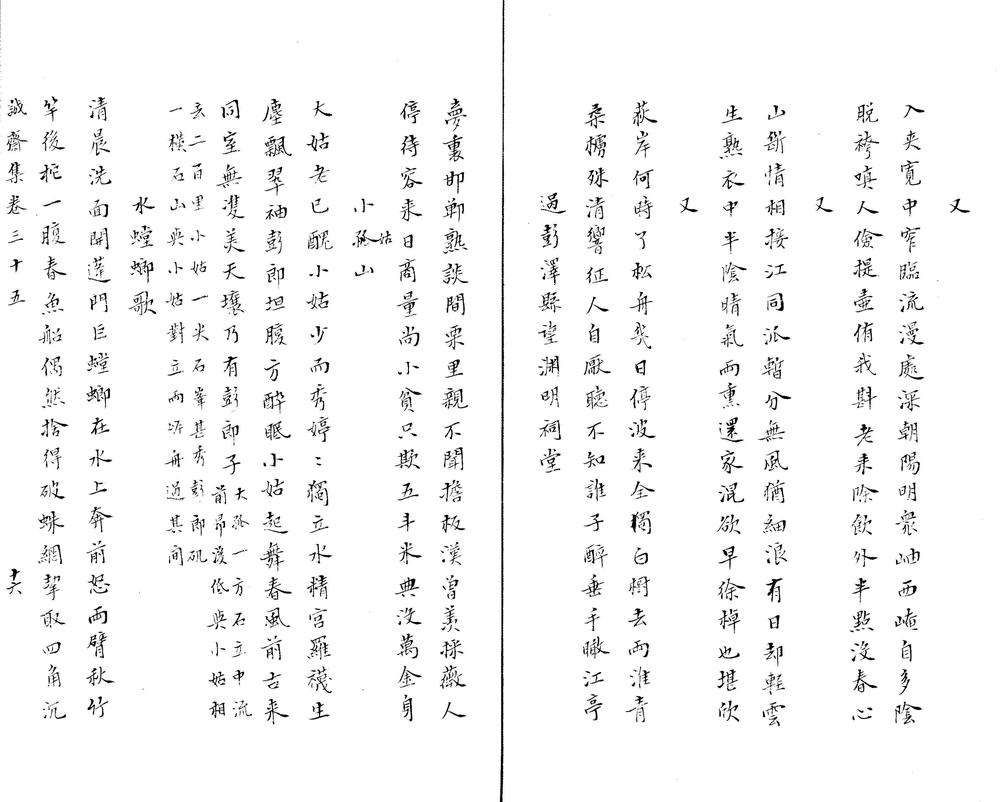 又
入夾寬中窄臨流漫處深朝陽明衆岫西崦自多陰
脱袴嗔人儉提壺侑我斟老来除飲外半點没春心
又
山斷情相接江同派暫分無風猶細浪有日却輕雲
生熟衣中半陰晴氣兩熏還家混欲早徐棹也堪欣
又
荻岸何時了松舟幾日停波来全獨白樹去兩淮青
柔櫓殊清響征人自厭聽不知誰子醉垂手瞰江亭
過彭澤縣望淵明祠堂
夢裏邯鄲熟談間栗里親不聞擔板漢曾羡採薇人
停待容来日商量尚小貧只欺五斗米典没萬金身
小孤山
姑
大姑老已醜小姑少而秀婷〻獨立水精宮羅襪生
塵飄翠袖彭郎坦腹方醉眠小姑起舞春風前古来
同室無㕠美天壤乃有彭郎子大孤一方石立中流
前昻後低與小姑相
去二百里小姑一尖石峯甚秀彭郎磯
一横石山與小姑對立兩岍舟過其间
水螳螂歌
清晨洗面開蓬門巨螳螂在水上奔前怒兩臂秋竹
竿後拕一腹春魚船偶然捨得破蛛網挈取四角沉
誠齋集卷三十五
十六